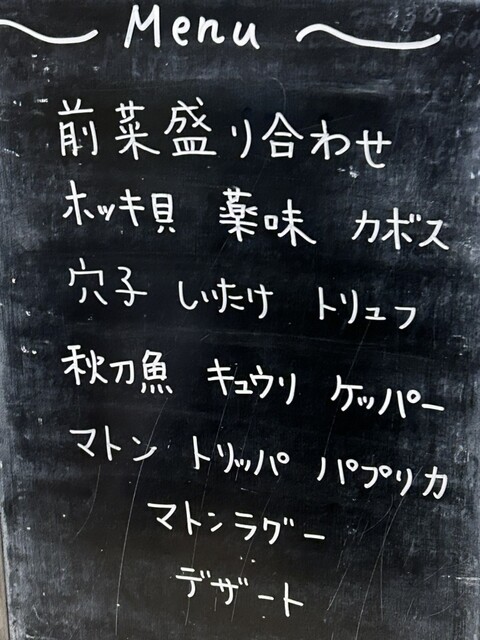 Menu
前菜盛り合わせ
ホッキ貝 薬味 カボス
穴子 しいたけ トリュフ
秋刀魚 キュウリ ケッパー
マトン トリッパ パプリカ
マトンラグー
デザート